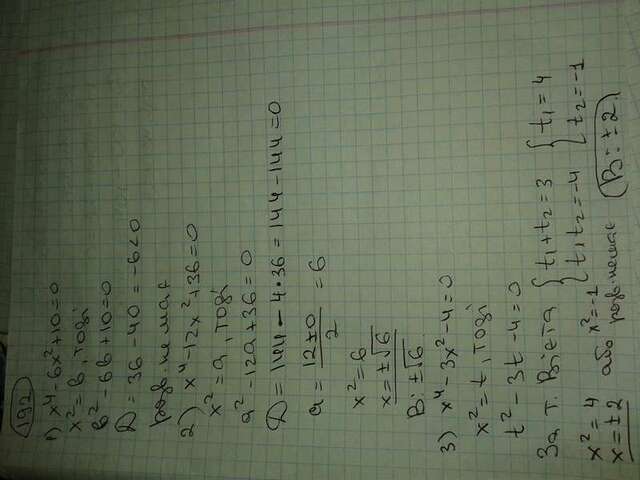 192
1) x⁴-6x²+10=0
x²=в, тоді
в²-6в+10=0
D = 36-40 = -6<0
розв. немає
2) x⁴-12x²+36=0
x²=a, тоді
a²-12a+36=0
D = 144-4•36 = 144-144=0
a = (12±0)/2 = 6
x²=6
x=±√6
В: ±√6.
3) x⁴-3x²-4=0
x²=t, тоді
t²-3t-4=0
За т. Вієта { t₁+t₂=3 { t₁=4
t₁t₂=-4 t₂=-1
x²=4 або x²=-1
x=±2 розв. немає В: ±2.